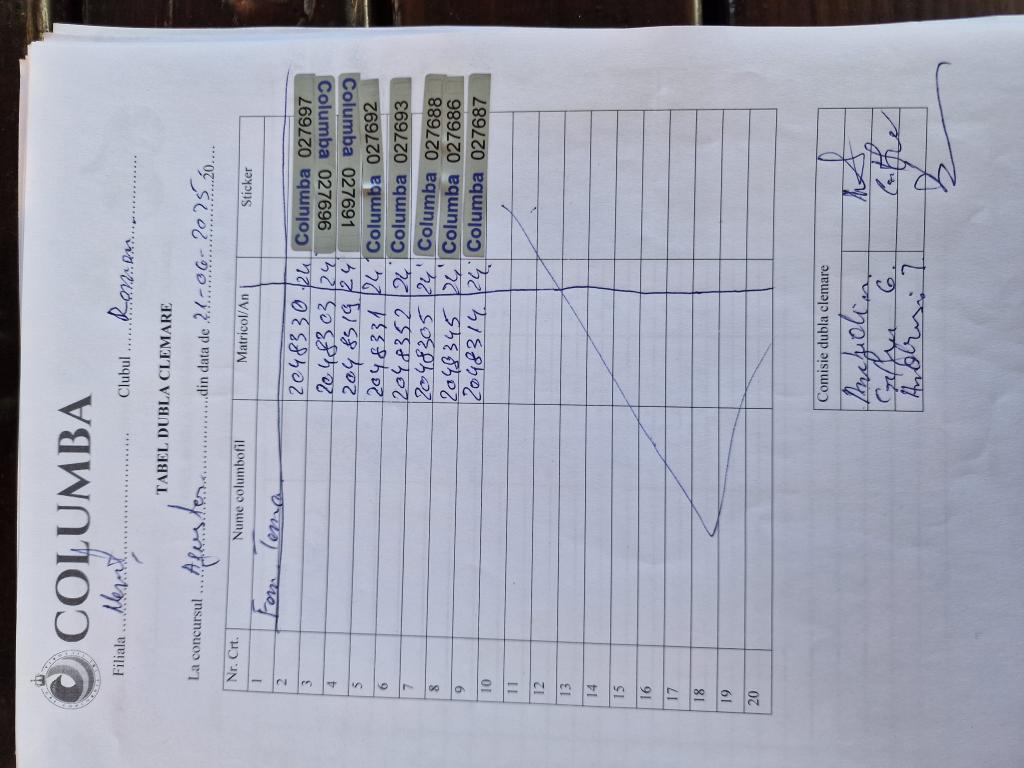 COLUMBA
Filiala ........ Clubul ....Roman....
TABEL DUBLA CLEMARE
La concursul ........ din data de 21-06-2025 20....
Nr. Crt. Nume columbofil Matricol/An Sticker
1 Toma
2
3 2048330 24 Columba 027697
4 2048303 24 Columba 027696
5 2048319 24 Columba 027691
6 2048331 24 Columba 027692
7 2048352 24 Columba 027693
8 2048305 24 Columba 027688
9 2048345 24 Columba 027686
10 2048314 24 Columba 027687
11
12
13
14
15
16
17
18
19
20
Comisie dubla clemare